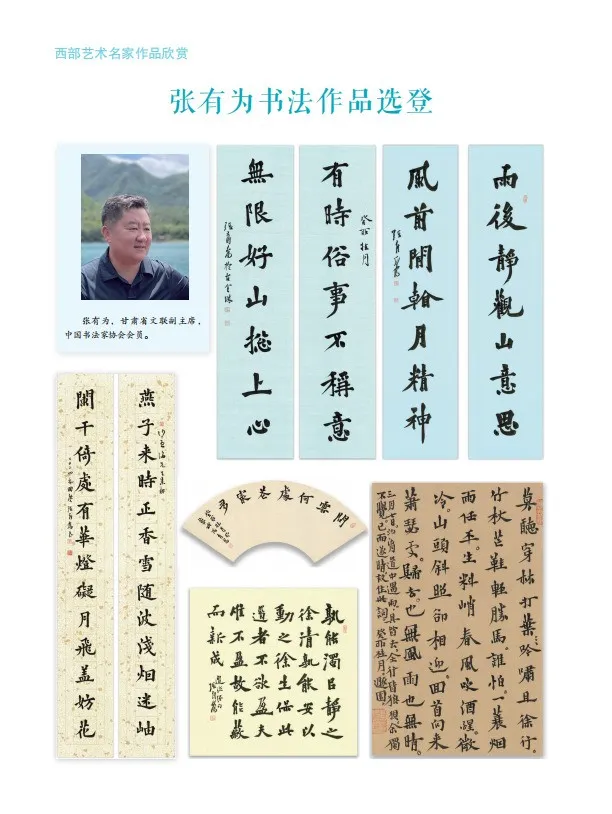 西部艺术名家作品欣赏
张有为书法作品选登
张有为，甘肃省文联副主席，
中国书法家协会会员。
雨後靜觀山意思
風前閒看月精神
張有為
有時俗事不稱意
癸卯桂月
無限好山揔上心
張有為於古金城
燕子来時正香雪随波淺烟迷岫
闌干倚處有華燈礙月飛盖妨花
雲何處
孰能濁㠯静之
徐清孰能安以
動之徐生保此
道者不欲盈夫
惟不盈故能蔽
而新成
張有為
莫聽穿林打葉吟嘯且徐行
竹杖芒鞋輕勝馬誰怕一蓑烟
雨任平生料峭春風吹酒醒微
冷山頭斜照却相迎回首向来
蕭瑟處歸去也無風雨也無晴
三月七日沙湖道中遇雨雨具皆去行皆狼狽余獨
不覺已而遂晴故作此詞 癸卯桂月